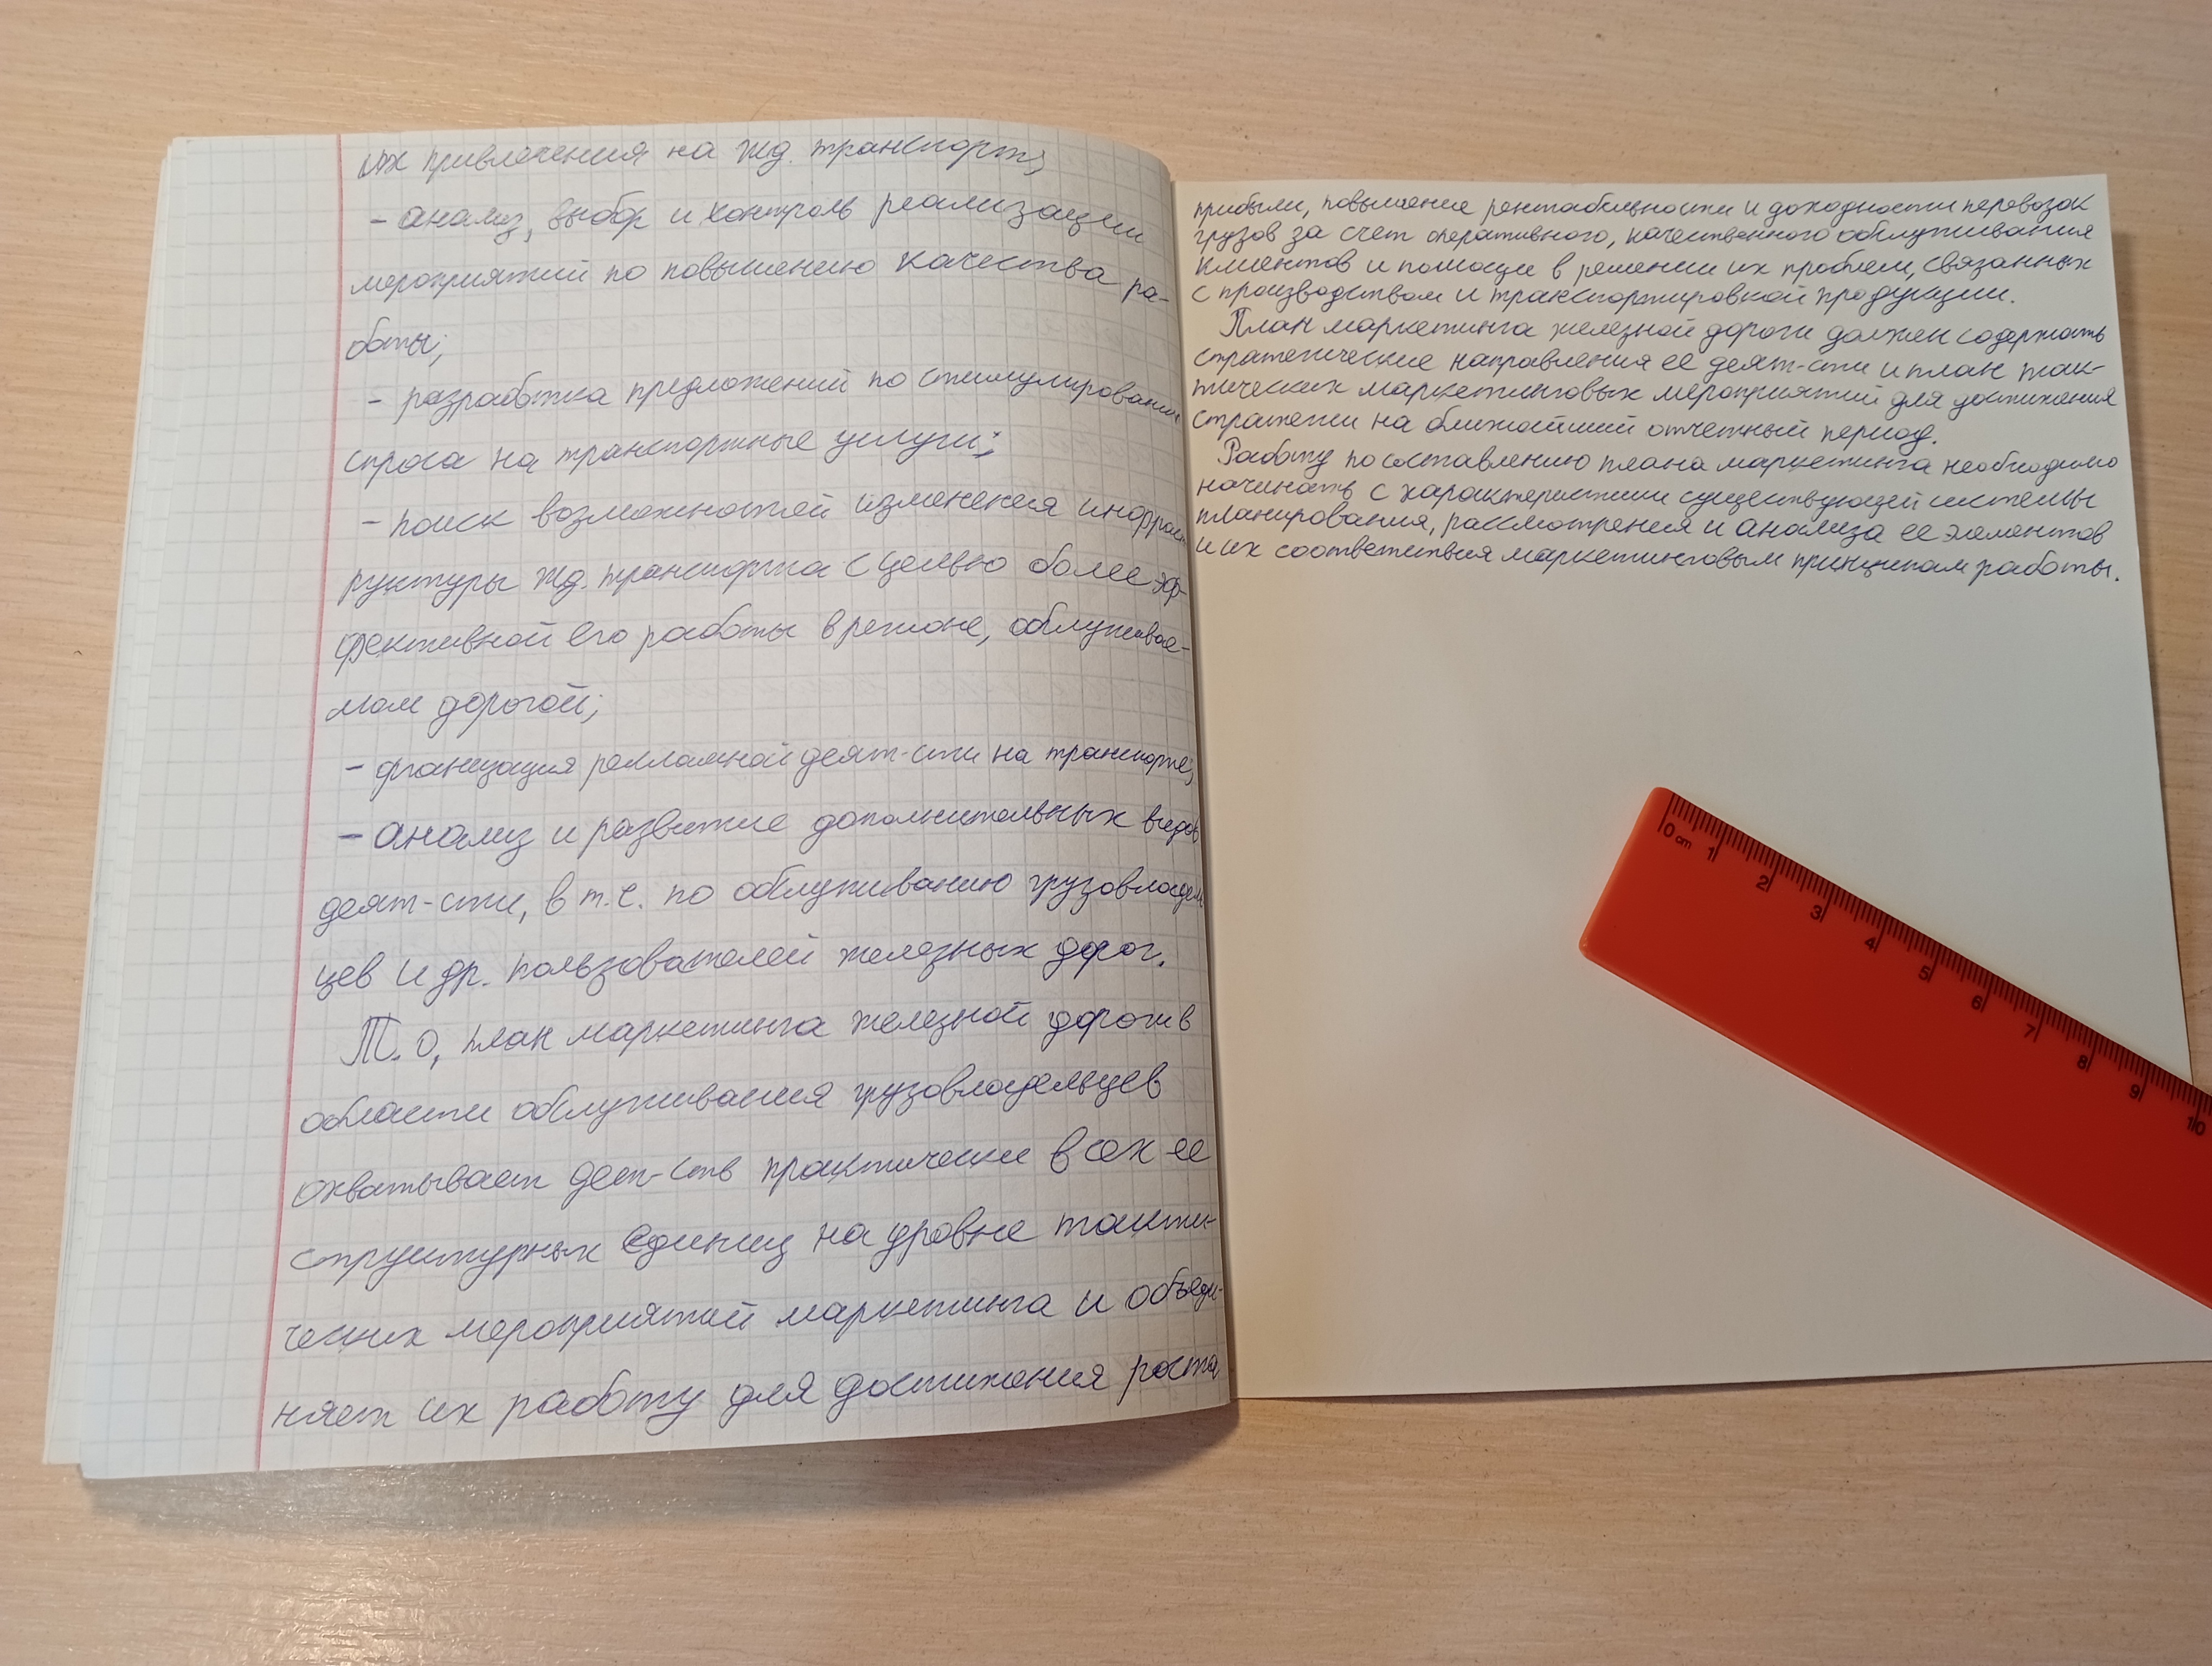 их привлечения на жд. транспорт;
- анализ, выбор и контроль реализации
мероприятий по повышению качества ра-
боты;
- разработка предложений по стимулировании
спроса на транспортные услуги;
- поиск возможностей изменения инфраст
руктуры жд. транспорта с целью более эф-
фективной его работы в регионе, обслуживае-
мом дорогой;
- организация рекламной деят-сти на транспорте;
- анализ и развитие дополнительных видов
деят-сти, в т.ч. по обслуживанию грузовладель
цев и др. пользователей железных дорог.
Т.о, план маркетинга железной дороги в
области обслуживания грузовладельцев
охватывает деят-ств практически всех ее
структурных единиц на уровне такти-
ческих мероприятий маркетинга и объеди-
няет их работу для достижения роста
прибыли, повышение рентабельности и доходности перевозок
грузов за счет оперативного, качественного обслуживания
клиентов и помощи в решении их проблем, связанных
с производством и транспортировкой продукции.
План маркетинга железной дороги должен содержать
стратегические направления ее деят-сти и план так-
тических маркетинговых мероприятий для достижения
стратегии на ближайший отчетный период.
Работу по составлению плана маркетинга необходимо
начинать с характеристики существующей системы
планирования, рассмотрения и анализа ее элементов
и их соответствия маркетинговым принципам работы.
0 cm 1 2 3 4 5 6 7 8 9 10